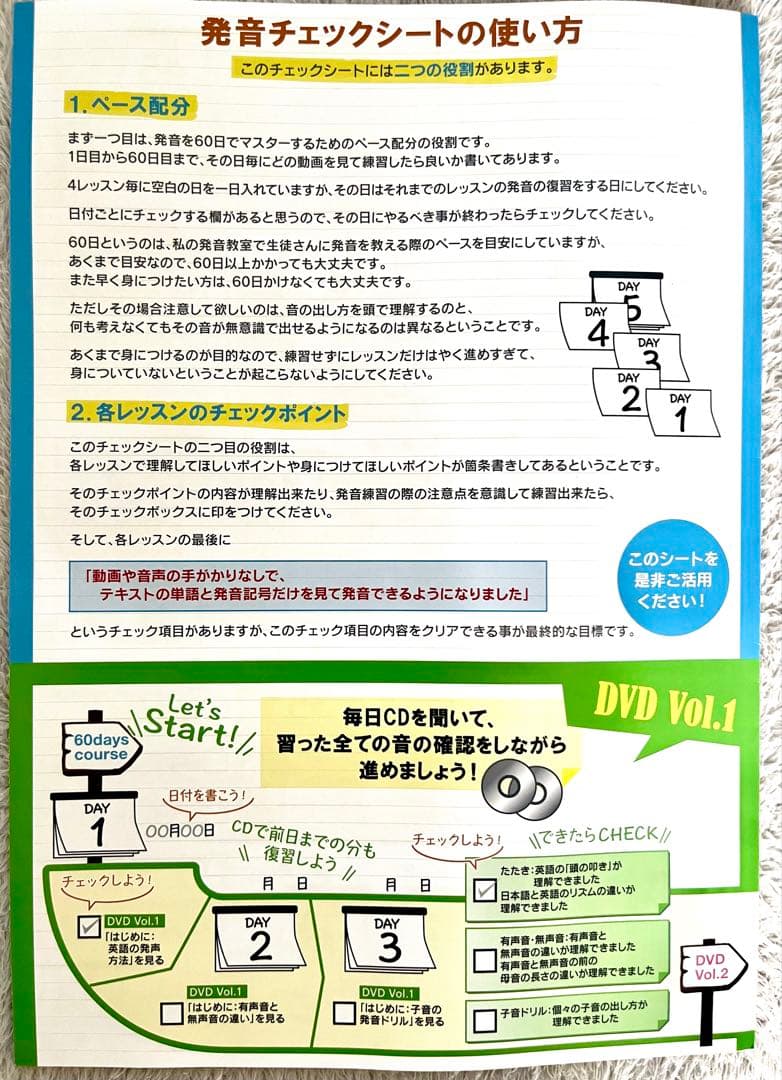 発音チェックシートの使い方
このチェックシートには二つの役割があります。
1.ペース配分
まず一つ目は、発音を60日でマスターするためのペース配分の役割です。
1日目から60日目まで、その日毎にどの動画を見て練習したら良いか書いてあります。
4レッスン毎に空白の日を一日入れていますが、その日はそれまでのレッスンの発音の復習をする日にしてください。
日付ごとにチェックする欄があると思うので、その日にやるべき事が終わったらチェックしてください。
60日というのは、私の発音教室で生徒さんに発音を教える際のペースを目安にしていますが、
あくまで目安なので、60日以上かかっても大丈夫です。
また早く身につけたい方は、60日かけなくても大丈夫です。
ただしその場合注意して欲しいのは、音の出し方を頭で理解するのと、
何も考えなくてもその音が無意識で出せるようになるのは異なるということです。
あくまで身につけるのが目的なので、練習せずにレッスンだけはやく進めすぎて、
身についていないということが起こらないようにしてください。
DAY
5
DAY
4
DAY
3
DAY
2
DAY
1
2.各レッスンのチェックポイント
このチェックシートの二つ目の役割は、
各レッスンで理解してほしいポイントや身につけてほしいポイントが箇条書きしてあるということです。
そのチェックポイントの内容が理解出来たり、発音練習の際の注意点を意識して練習出来たら、
そのチェックボックスに印をつけてください。
そして、各レッスンの最後に
「動画や音声の手がかりなしで、
テキストの単語と発音記号だけを見て発音できるようになりました」
というチェック項目がありますが、このチェック項目の内容をクリアできる事が最終的な目標です。
このシートを
是非ご活用
ください!
DVD Vol.1
Let's
Start!
60days
course
毎日CDを聞いて、
習った全ての音の確認をしながら
進めましょう!
DAY
1
日付を書こう!
〇〇月〇〇日
CDで前日までの分も
復習しよう
チェックしよう!
できたらCHECK
月 日
月 日
チェックしよう!
DVD Vol.1
「はじめに:
英語の発声
方法」を見る
DAY
2
DVD Vol.1
「はじめに:有声音と
無声音の違い」を見る
DAY
3
DVD Vol.1
「はじめに:子音の
発音ドリル」を見る
たたき:英語の「頭の叩き」が
理解できました
日本語と英語のリズムの違いが
理解できました
有声音・無声音:有声音と
無声音の違いが理解できました
有声音と無声音の前の
母音の長さの違いが理解できました
子音ドリル:個々の子音の出し方が
理解できました
DVD
Vol.2